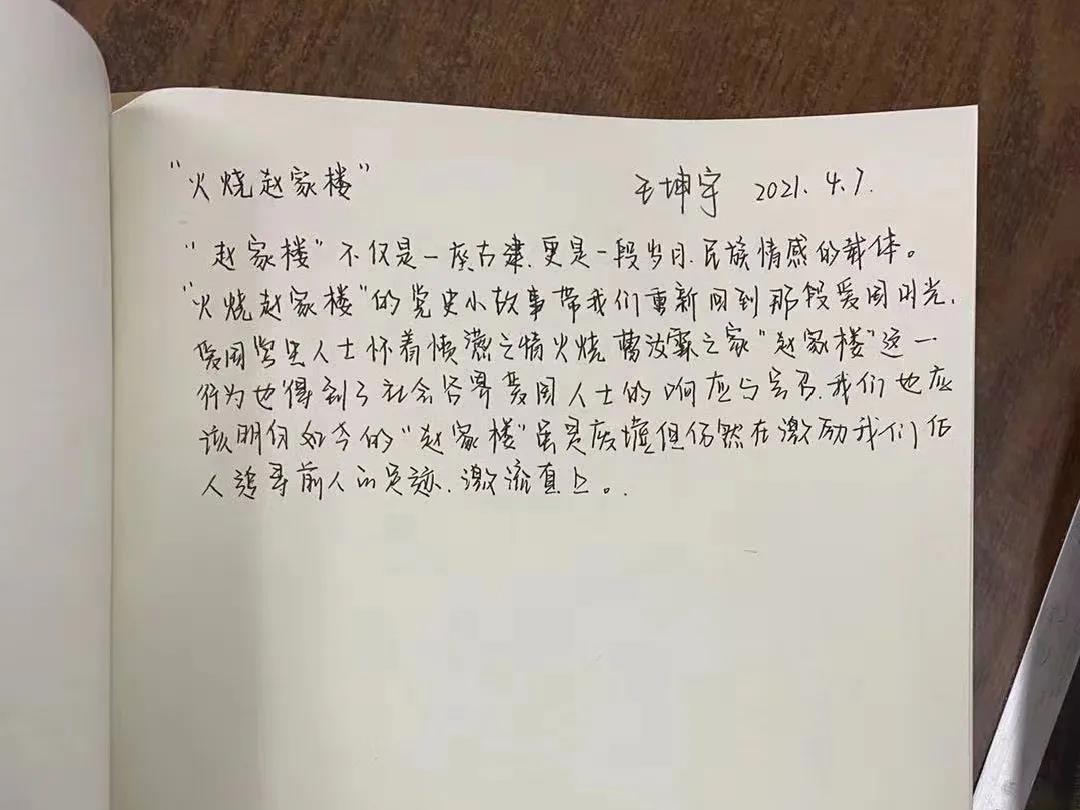 “火烧赵家楼” 王坤宇 2021.4.7.
“赵家楼”不仅是一座古建,更是一段岁月、民族情感的载体。
“火烧赵家楼”的党史小故事带我们重新回到那段爱国时光,
爱国学生人士怀着愤懑之情火烧曹汝霖之家“赵家楼”这一
行为也得到了社会各界爱国人士的响应与声乃,我们也应
该明白如今的“赵家楼”虽是废墟但仍然在激励我们后
人追寻前人的足迹,激流直上。